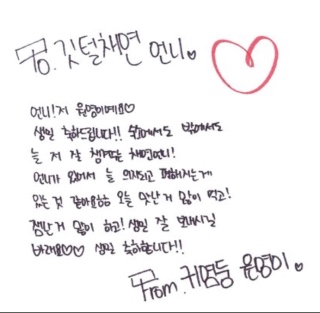 To. 깃털채연 언니♥
언니! 저 원영이예요♡
생일 축하드립니다!! 숙소에서도 밖에서도
늘 저 잘 챙겨주는 채연언니!
언니가 있어서 늘 의지되고 편해지는게
있는 것 같아요ㅎㅎ 오늘 맛난거 많이 먹고!
잼난거 많이 하고! 생일 잘 보내시길
바래요♡♡ 생일 축하합니다!!
From. 귀염둥 원영이♥